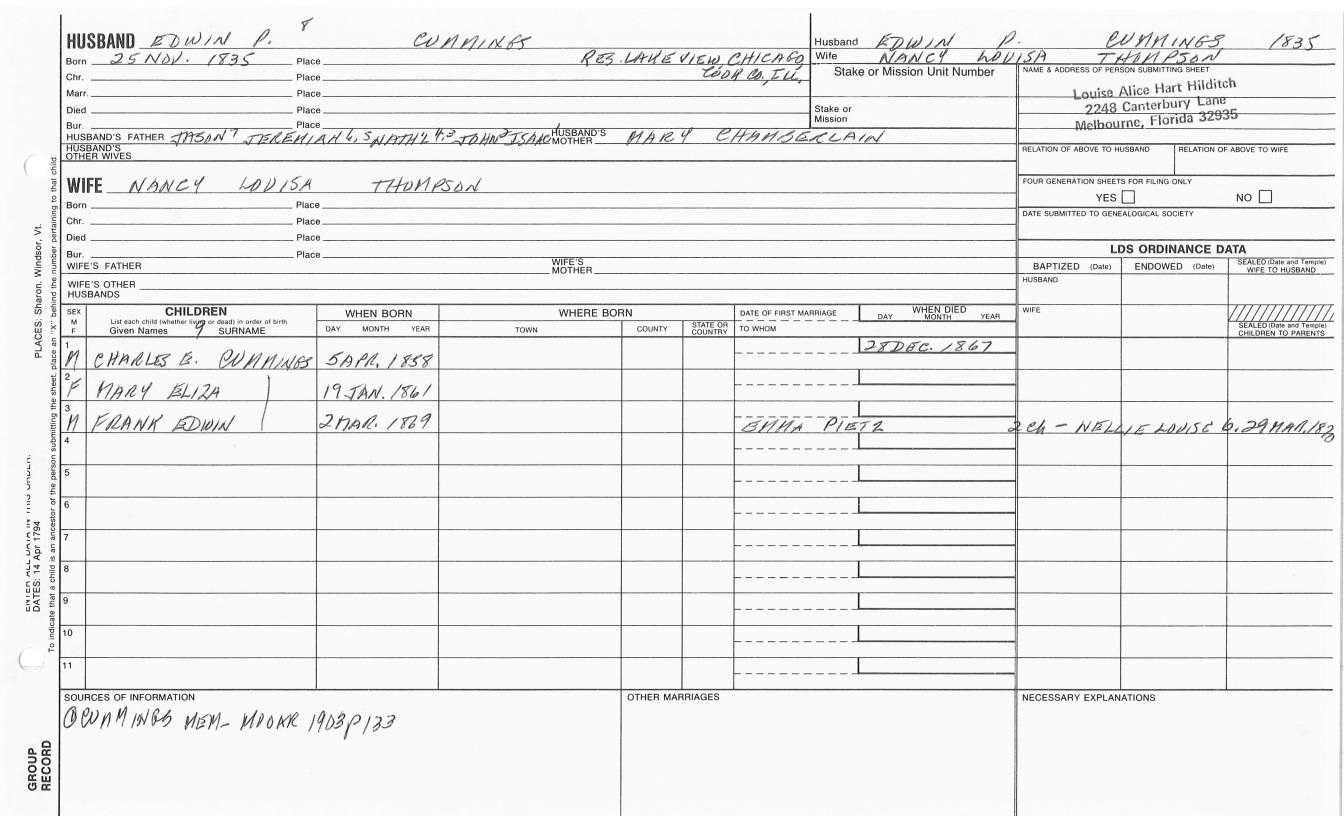 8
HUSBAND EDWIN P. CUMMINGS
Born 25 NOV. 1835 Place RES. LAKEVIEW, CHICAGO,
COOK CO., ILL.
Chr. Place
Marr. Place
Died Place
Bur. Place
HUSBAND'S FATHER JASON 7 JEREMIAH 6, 5 NATH'L 4, 3 JOHN 2 ISAAC HUSBAND'S MOTHER MARY CHAMBERLAIN
HUSBAND'S OTHER WIVES
Husband EDWIN P. CUMMINGS 1835
Wife NANCY LOUISA THOMPSON
Stake or Mission Unit Number
Stake or Mission
NAME & ADDRESS OF PERSON SUBMITTING SHEET
Louise Alice Hart Hilditch
2248 Canterbury Lane
Melbourne, Florida 32935
RELATION OF ABOVE TO HUSBAND RELATION OF ABOVE TO WIFE
FOUR GENERATION SHEETS FOR FILING ONLY
YES NO
DATE SUBMITTED TO GENEALOGICAL SOCIETY
WIFE NANCY LOUISA THOMPSON
Born Place
Chr. Place
Died Place
Bur. Place
WIFE'S FATHER WIFE'S MOTHER
WIFE'S OTHER HUSBANDS
LDS ORDINANCE DATA
BAPTIZED (Date) ENDOWED (Date) SEALED (Date and Temple) WIFE TO HUSBAND
HUSBAND
WIFE
SEALED (Date and Temple) CHILDREN TO PARENTS
SEX M F
CHILDREN
List each child (whether living or dead) in order of birth
Given Names 9 SURNAME
WHEN BORN
DAY MONTH YEAR
WHERE BORN
TOWN COUNTY STATE OR COUNTRY
DATE OF FIRST MARRIAGE
TO WHOM
WHEN DIED
DAY MONTH YEAR
1 M CHARLES E. CUMMINGS 5 APR. 1858 28 DEC. 1867
2 F MARY ELIZA 19 JAN. 1861
3 M FRANK EDWIN 2 MAR. 1869 EMMA PIETZ 2 ch - NELLIE LOUISE b. 29 MAR.
4
5
6
7
8
9
10
11
SOURCES OF INFORMATION
① CUMMINGS MEM- MOOAR 1903 p 133
OTHER MARRIAGES
NECESSARY EXPLANATIONS
PLACES: Sharon, Windsor, Vt.
ENTER ALL DATA IN THIS ORDER:
DATES: 14 Apr 1794
To indicate that a child is an ancestor of the person submitting the sheet, place an "X" behind the number pertaining to that child.
GROUP RECORD